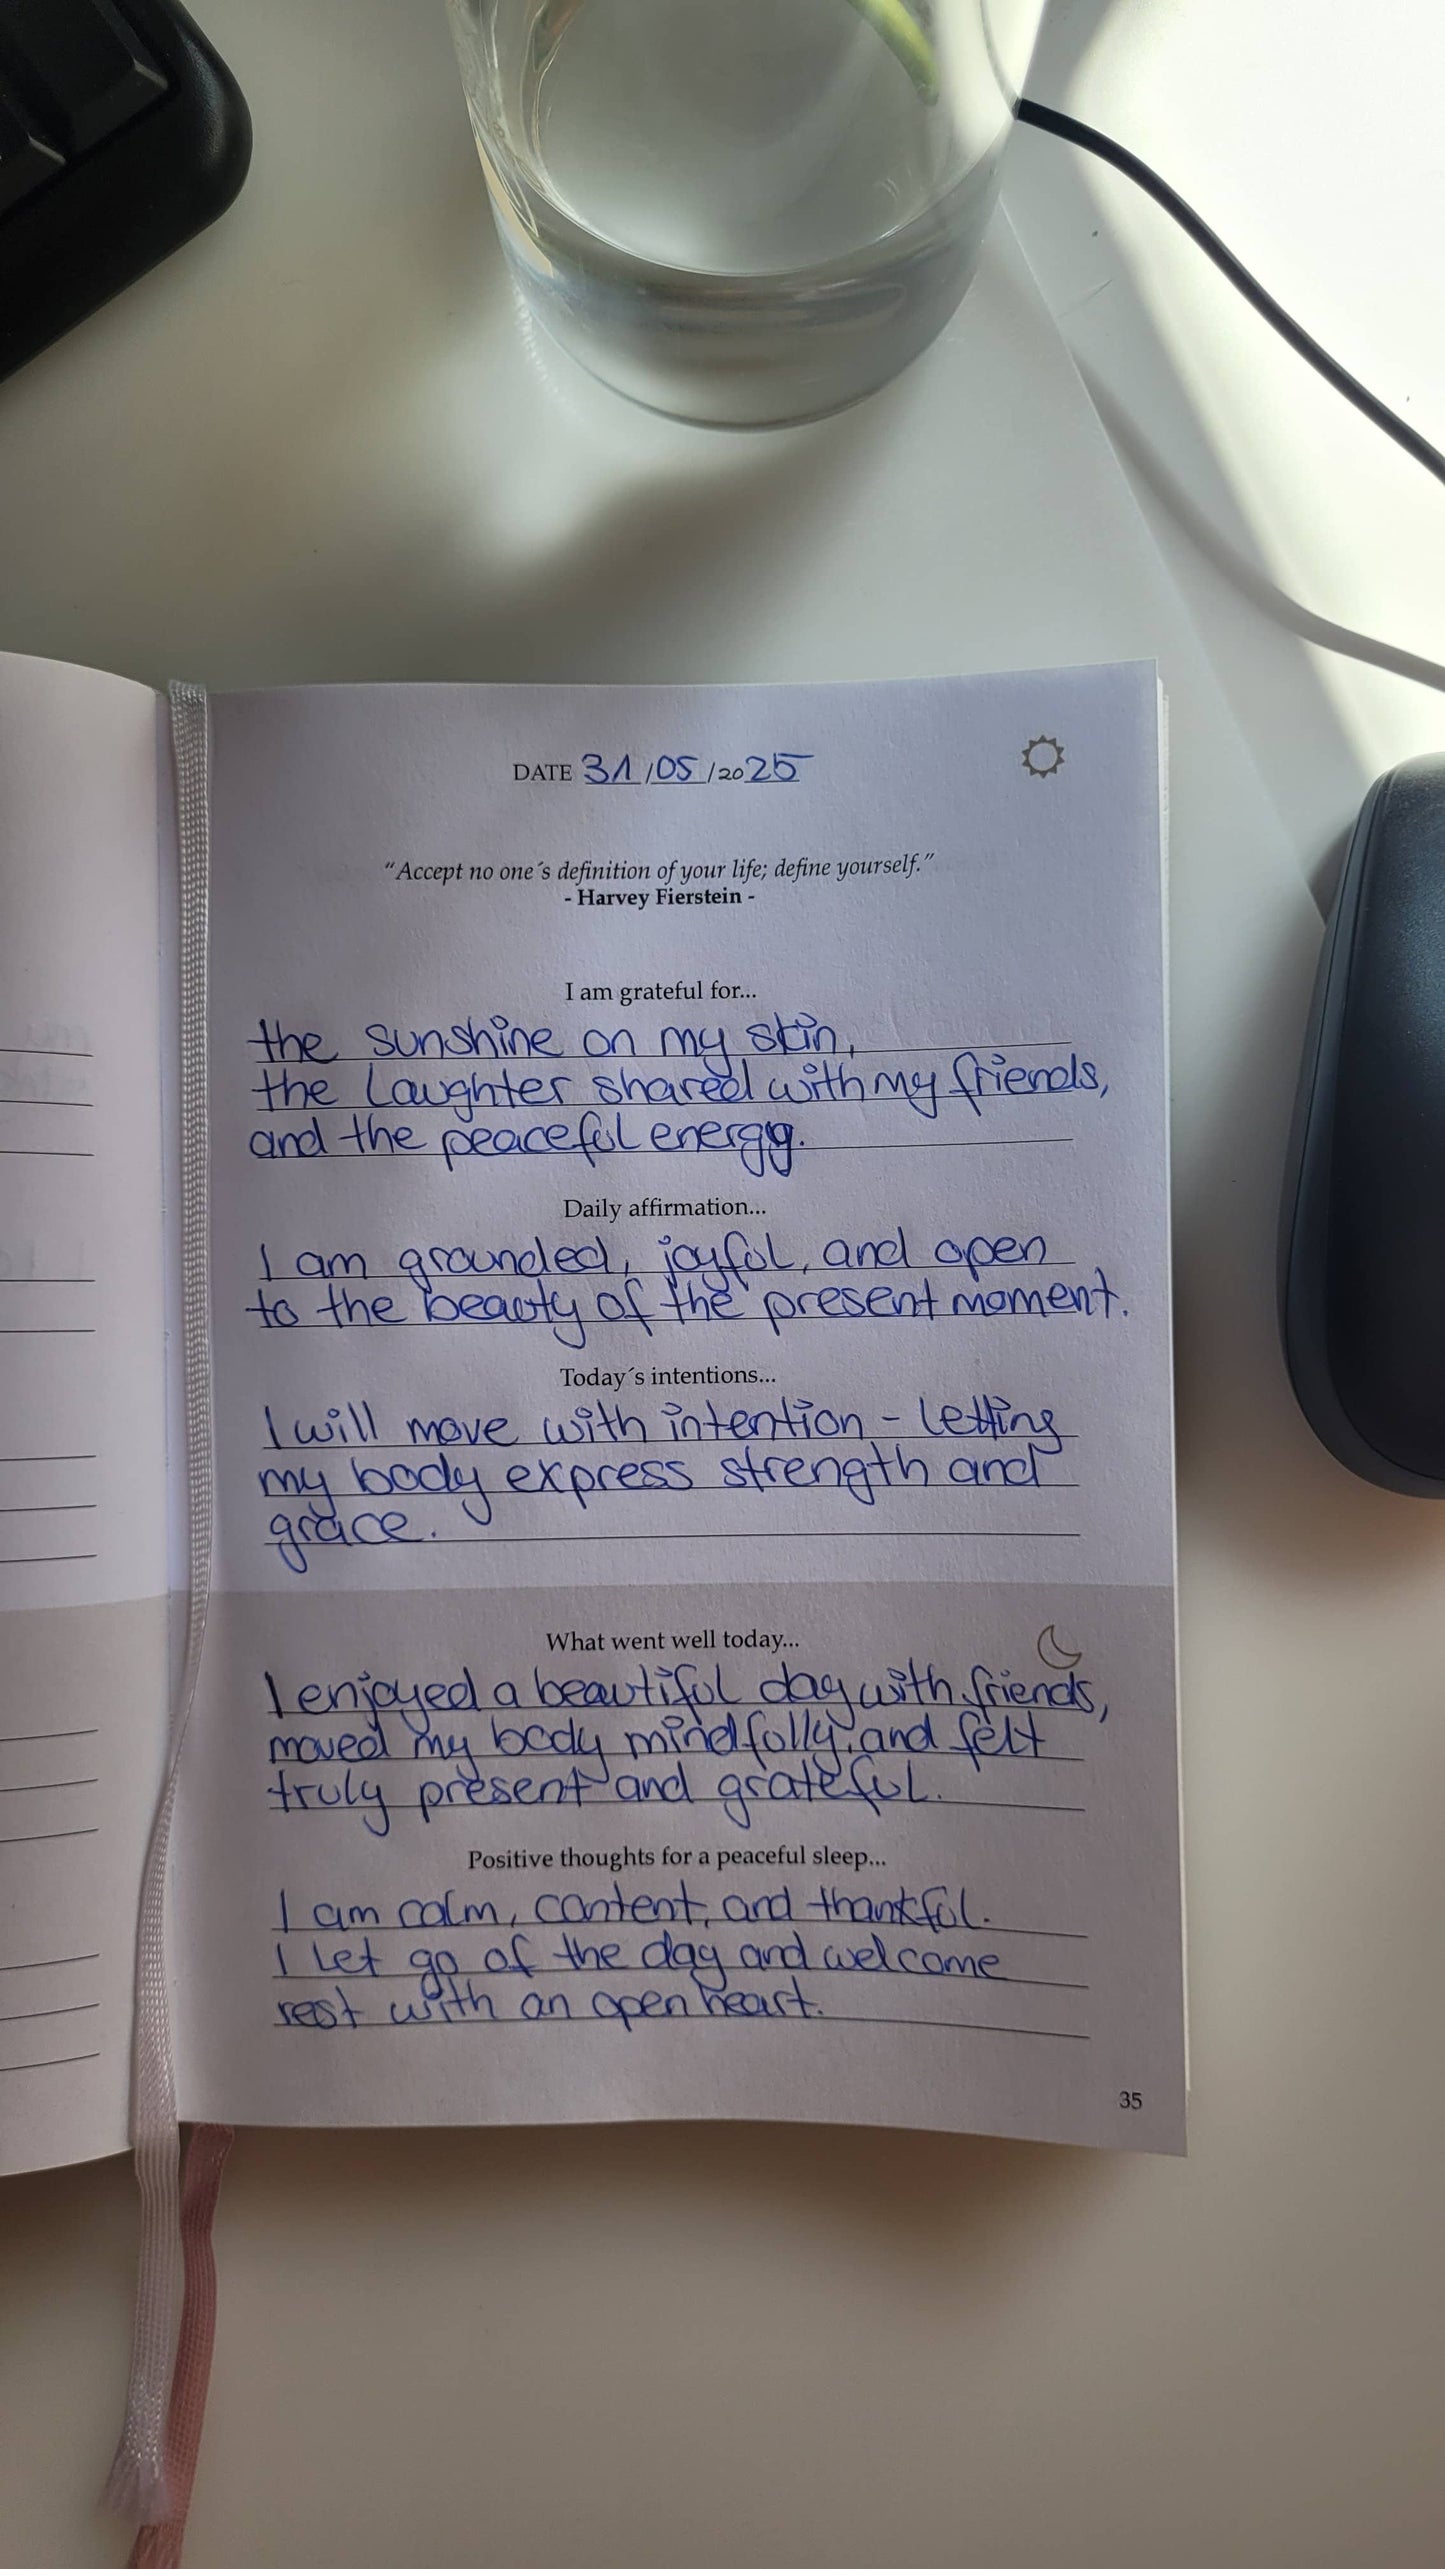 DATE 31/05/2025
"Accept no one´s definition of your life; define yourself."
- Harvey Fierstein -
I am grateful for...
the sunshine on my skin,
the laughter shared with my friends,
and the peaceful energy.
Daily affirmation...
I am grounded, joyful, and open
to the beauty of the present moment.
Today´s intentions...
I will move with intention - letting
my body express strength and
grace.
What went well today...
I enjoyed a beautiful day with friends,
moved my body mindfully, and felt
truly present and grateful.
Positive thoughts for a peaceful sleep...
I am calm, content, and thankful.
I let go of the day and welcome
rest with an open heart.
35